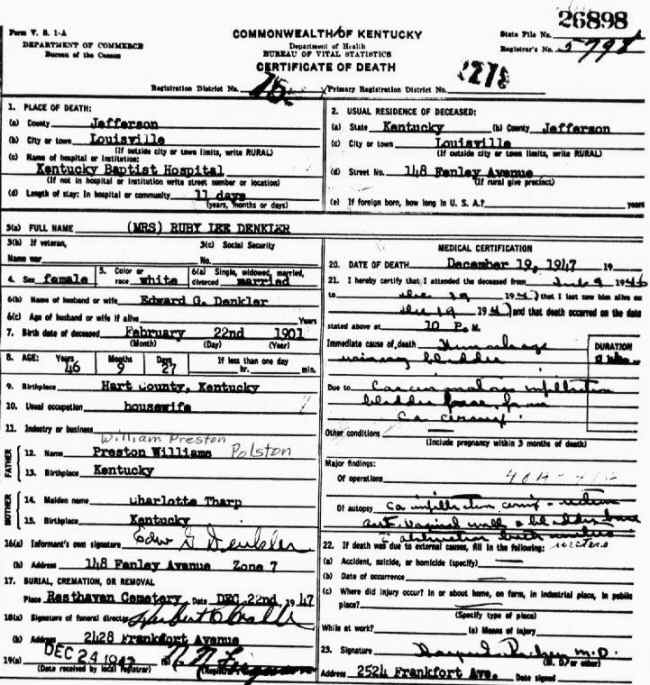 26898
Form V. S. 1-A
DEPARTMENT OF COMMERCE
Bureau of the Census
COMMONWEALTH OF KENTUCKY
Department of Health
BUREAU OF VITAL STATISTICS
CERTIFICATE OF DEATH
State File No.
Registrar's No. 5798
Registration District No. 75 Primary Registration District No.
1. PLACE OF DEATH:
(a) County Jefferson
(b) City or town Louisville
(If outside city or town limits, write RURAL)
(c) Name of hospital or institution:
Kentucky Baptist Hospital
(If not in hospital or institution write street number or location)
(d) Length of stay: In hospital or community 11 days
(years, months or days)
2. USUAL RESIDENCE OF DECEASED:
(a) State Kentucky (b) County Jefferson
(c) City or town Louisville
(If outside city or town limits, write RURAL)
(d) Street No. 148 Fenley Avenue
(If rural give precinct)
(e) If foreign born, how long in U. S. A.? years
3(a) FULL NAME (MRS) RUBY LEE DENKLER
3(b) If veteran, 3(c) Social Security
Name war No.
4. Sex female 5. Color or race white 6(a) Single, widowed, married, divorced married
6(b) Name of husband or wife Edward G. Denkler
6(c) Age of husband or wife if alive Years
7. Birth date of deceased February 22nd 1901
(Month) (Day) (Year)
8. AGE: Years Months Days If less than one day
46 9 27 hr. min.
9. Birthplace Hart County, Kentucky
10. Usual occupation housewife
11. Industry or business
William Preston
FATHER
12. Name Preston Williams Polston
13. Birthplace Kentucky
MOTHER
14. Maiden name Charlotte Tharp
15. Birthplace Kentucky
16(a) Informant's own signature Edw G Denkler
(b) Address 148 Fenley Avenue Zone 7
17. BURIAL, CREMATION, OR REMOVAL
Place Resthaven Cemetery Date DEC. 22nd, 1947
18(a) Signature of funeral director
(b) Address 2428 Frankfort Avenue
19(a) DEC 24 1947 (b)
(Date received by local registrar) (Registrar's
MEDICAL CERTIFICATION
20. DATE OF DEATH December 19, 1947 19
21. I hereby certify that I attended the deceased from 19
to Dec 19 194 that I last saw him alive on
Dec 19 194 and that death occurred on the date
stated above at 10 P. M.
Immediate cause of death Hemorrhage DURATION
urinary bladder
Due to Carcinomatous infiltration
bladder from
Ca cervix
Other conditions
(Include pregnancy within 3 months of death)
Major findings:
Of operations
Of autopsy Ca infiltration
ant. vaginal wall & bladder
obstruction both ureters
22. If death was due to external causes, fill in the following:
(a) Accident, suicide, or homicide (specify)
(b) Date of occurrence
(c) Where did injury occur? In or about home, on farm, in industrial place, in public
place?
(Specify type of place)
While at work? (e) Means of injury
23. Signature M.D.
(M. D. or other)
Address 2524 Frankfort Ave. Date signed